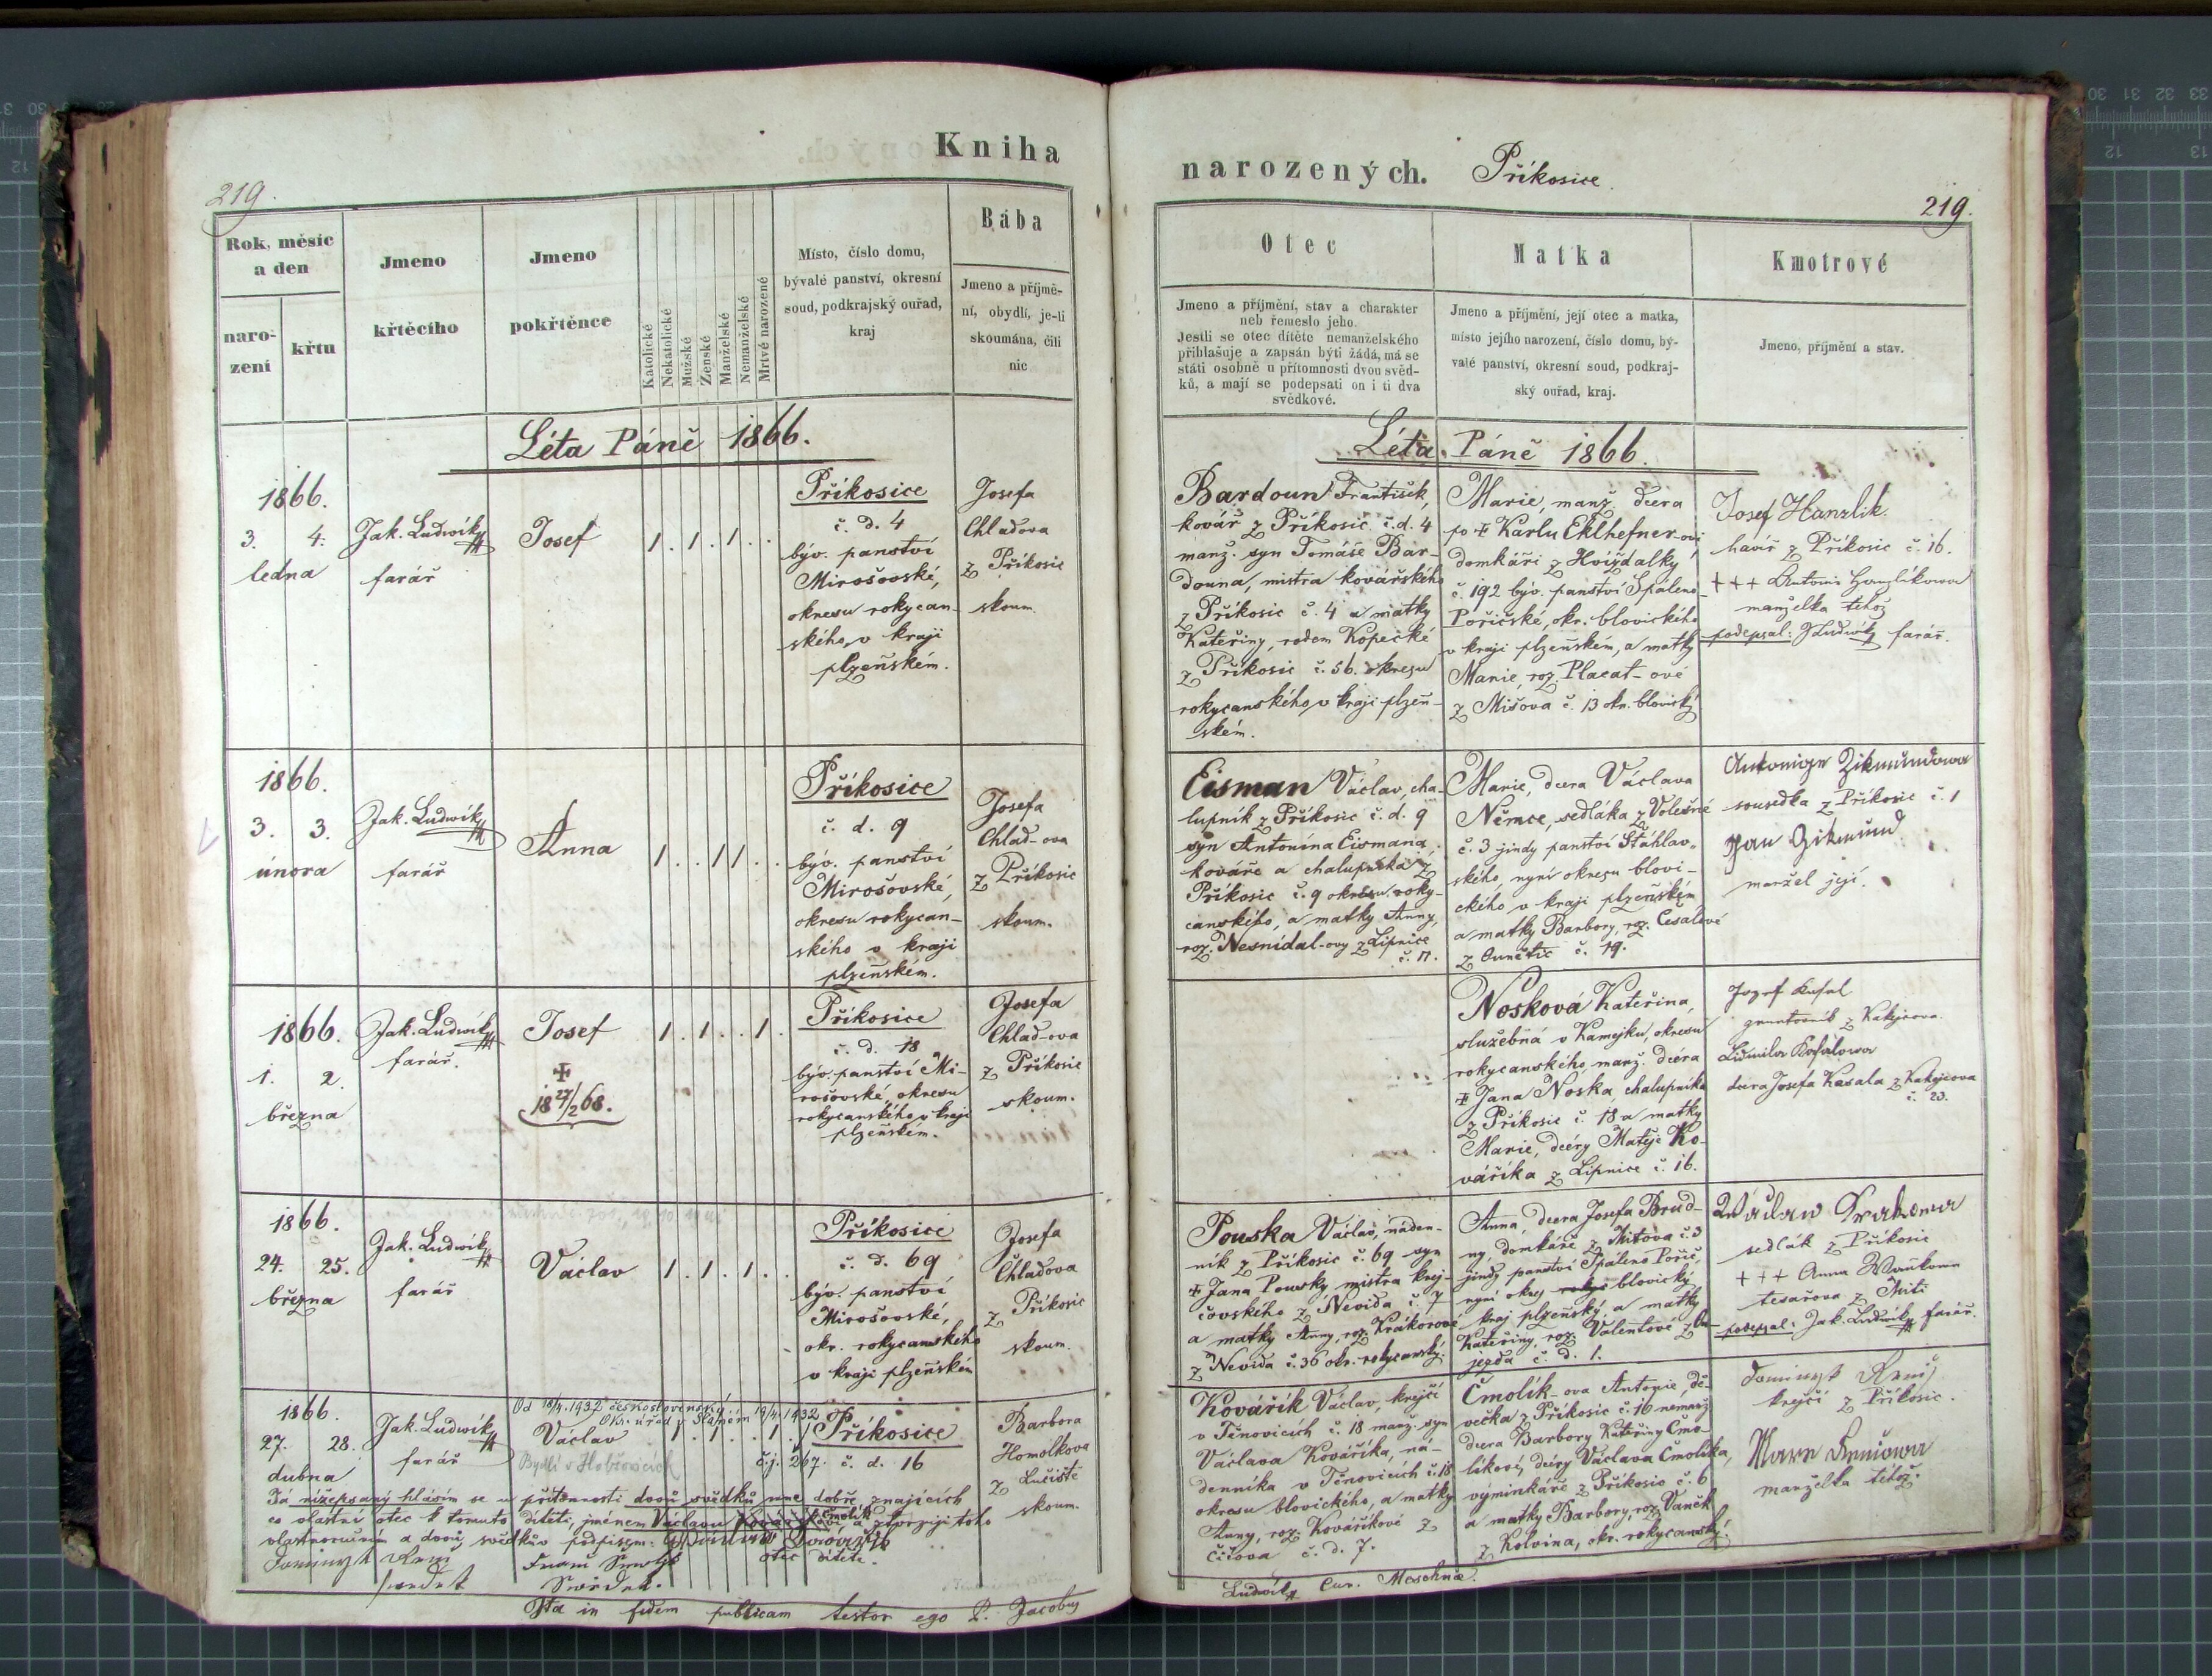 Kniha
219.
Rok, měsíc
a den
naro-
zení
křtu
Jmeno
křtěcího
Jmeno
pokřtěnce
Katolické
Nekatolické
Mužské
Ženské
Manželské
Nemanželské
Mrtvé narozené
Místo, číslo domu,
bývalé panství, okresní
soud, podkrajský ouřad,
kraj
Bába
Jmeno a příjmě-
ní, obydlí, je-li
skoumána, čili
nic
Léta Páně 1866.
1866.
3. 4.
ledna
Jak. Ludwík
farář
Josef
1 . 1 . 1 . .
Příkosice
č. d. 4
býv. panství
Mirošovské,
okresu rokycan-
ského, v kraji
plzeňském.
Josefa
Chladova
z Příkosic
skoum.
1866.
3. 3.
února
Jak. Ludwík
farář
Anna
1 . . 1 1 . .
Příkosice
č. d. 9
býv. panství
Mirošovské,
okresu rokycan-
ského v kraji
plzeňském.
Josefa
Chlad-ova
z Příkosic
skoum.
1866.
1. 2.
března
Jak. Ludwík
farář.
Josef
✝
18 27/2 68.
1 . 1 . . 1 .
Příkosice
č. d. 18
býv. panství Mi-
rošovské, okresu
rokycanského v kraji
plzeňském.
Josefa
Chlad-ova
z Příkosic
skoum.
1866.
24. 25.
března
Jak. Ludwík
farář
Václav
1 . 1 . 1 . .
Příkosice
č. d. 69
býv. panství
Mirošovské,
okr. rokycanského
v kraji plzeňském
Josefa
Chladova
z Příkosic
skoum.
1866.
27. 28.
dubna
Jak. Ludwík
farář
Od 18/4.1932 československý.
Ok. úřad v Slaném 19/4.1932
Václav
1 . 1 . . 1 .
č.j. 267.
Příkosice
č. d. 16
Barbora
Homolkova
z Lučiště
skoum.
Já nížepsaný hlásím se u přítomnosti dvou svědků mne dobře znajících
co vlastní otec k tomuto dítěti, jménem Václavu Čmolíkovi a stvrzuji toho
vlastnoručním a dvou svědkův podpisem: Kovařík
otec dítěte.
Svědek.
Ita in fidem publicam testor ego P. Jacobus
narozených. Příkosice.
219.
Otec
Jmeno a příjmění, stav a charakter
neb řemeslo jeho.
Jestli se otec dítěte nemanželského
přihlašuje a zapsán býti žádá, má se
státi osobně u přítomnosti dvou svěd-
ků, a mají se podepsati on i ti dva
svědkové.
Matka
Jmeno a příjmění, její otec a matka,
místo jejího narození, číslo domu, bý-
valé panství, okresní soud, podkraj-
ský ouřad, kraj.
Kmotrové
Jmeno, příjmění a stav.
Léta Páně 1866.
Bardoun František,
kovář z Příkosic č.d. 4
manž. syn Tomáše Bar-
douna, mistra kovářského
z Příkosic č. 4 a matky
Kateřiny, rodem Kopečké
z Příkosic č. 56. okresu
rokycanského, v kraji plzeň-
ském.
Marie, manž. dcera
po ✝ Karlu Eklhefner-ovi
domkáři z Hvíždalky
č. 192 býv. panství Spáleno-
Poříčské, okr. blovického
v kraji plzeňském, a matky
Marie, roz. Placat-ové
z Mišova č. 13 okr. blovický
Josef Hanzlik
havíř z Příkosic č. 16.
+++ Antonie Hanzlíkowa
manželka téhož
podepsal: J Ludwík farář.
Eisman Václav, cha-
lupník z Příkosic č. d. 9
syn Antonína Eismana,
kováře a chalupníka z
Příkosic č. 9 okresu roky-
canského, a matky Anny,
roz. Nesnídal-ovy z Lipnice
č. 11.
Marie, dcera Václava
Němce, sedláka z Volešné
č. 3 jindy panství Štáhlav-
ského nyní okresu blovi-
ckého v kraji plzeňském
a matky Barbory, roz. Cesalové
z č. 19.
Antonige Zikmundowa
sousedka z Příkosic č. 1
Jan Zikmund
manžel její.
Nosková Kateřina,
služebná v Kamejku, okresu
rokycanského, manž. dcéra
✝ Jana Noska, chalupníka
z Příkosic č. 18 a matky
Marie, dcéry Matěje Ko-
váříka z Lipnice č. 16.
Jozef Kasal
gruntovník z Kakejcova.
Lidmila Kasalowa
dcera Josefa Kasala z Kakejcova
č. 23.
Pouska Václav, náden-
ník z Příkosic č. 69 syn
✝ Jana Pousky, mistra krej-
čovského z Nevida č. 7
a matky Anny, roz. Krákorové
z Nevida č. 36 okr. rokycanský.
Anna, dcera Josefa Brud-
ny, domkáře z Mítova č. 3
jindy panství Spáleno Poříč,
nyní okres blovický
kraj plzeňský, a matky
Kateřiny, roz. Valentové z
č. d. 1.
Wáclaw
sedlák z Příkosic
+++ Anna
tesařova z Mítí
podepsal: Jak. Ludwík farář.
Kovářík Václav, krejčí
v Těnovicích č. 18 manž. syn
Václava Kováříka, ná-
denníka v Těnovicích č. 18
okresu blovického, a matky
Anny, roz. Kováříkové z
Čížova č. d. 7.
Čmolík-ova Antonie, dě-
večka z Příkosic č. 16 nemanž.
dcera Barbory Kateřiny Čmo-
líkové, dcéry Václava Čmolíka,
výminkáře z Příkosic č. 6
a matky Barbory, roz. Vaněk
z Kolvína, okr. rokycanský.
krejčí z Příkosic.
manželka téhož.
Ludwík Cur. Meschnae.